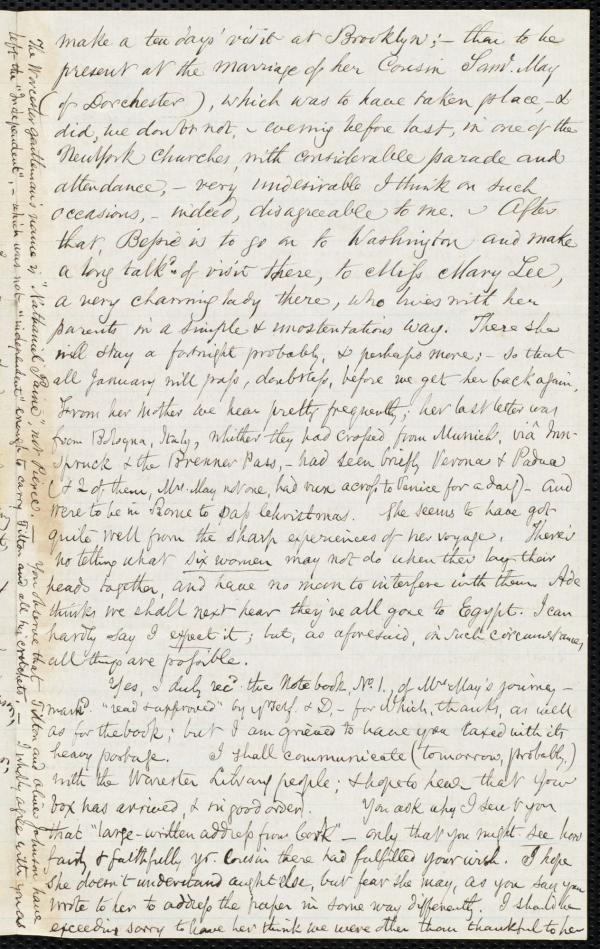 make a ten days' visit at Brooklyn; - then to be
present at the marriage of her Cousin Saml. May
(of Dorchester), which was to have taken place, - &
did, we doubt not, - evening before last, in one of the
New York churches, with considerable parade and
attendance, - very undesirable I think on such
occasions, - indeed, disagreeable to me. - After
that, Bessie is to go on to Washington and make
a long talkd. of visit there, to Miss Mary Lee,
a very charming lady there, who lives with her
parents in a simple & unostentatious way. There she
will stay a fortnight probably, & perhaps more; - so that
all January will pass, doubtless, before we get her back again.
From her Mother we hear pretty frequently; her last letter was
from Bologna, Italy, whither they had crossed from Munich, viâ Inn-
spruck & the Brenner Pass, - had seen briefly Verona & Padua
(& 2 of them, Mrs. May not one, had run across to Venice for a day) - and
were to be in Rome to pass Christmas. She seems to have got
quite well from the sharp experiences of her voyage. There's
no telling what six women may not do when they lay their
heads together, and have no man to interfere with them. Ade
thinks we shall next hear they're all gone to Egypt. I can
hardly say I expect it; but, as aforesaid, in such circumstances,
all things are possible.
Yes, I duly recd. the Notebook, No. 1, of Mrs. May's journey -
markd. "read & approved" by yrself. & D. - for which, thanks, as well
as for the book; but I am grieved to have you taxed with its
heavy postage. I shall communicate (tomorrow, probably,)
with the Worcester Library people; & hope to hear that your
box has arrived, & in good order. You ask why I sent you
that "large-written address from Cork" - only that you might see how
fairly & faithfully yr. Cousin there had fulfilled your wish. I hope
she doesn't understand aught else, but fear she may, as you say you
wrote to her to address the paper in some way differently. I should be
exceeding sorry to have her think we were other than thankful to her
The Worcester gentleman's name is "Nathaniel Paine", not Pierce. - You observe that Tilton and Oliver Johnson have
left the "Independent", - which was not "independent" enough to carry Tilton and all his crotchets. - I wholly agree with you as